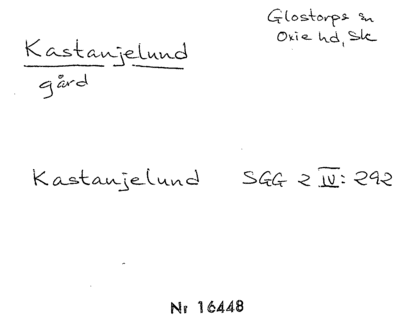 Glostorps sn
Oxie hd, Sk
Kastanjelund
gård
Kastanjelund SGG 2 IV: 292
Nr 16448